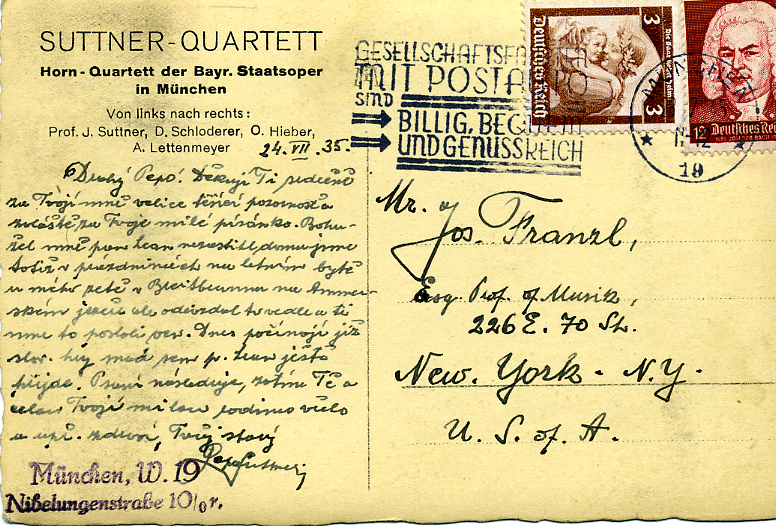 SUTTNER-QUARTETT
Horn-Quartett der Bayr. Staatsoper
in München
Von links nach rechts:
Prof. J. Suttner, D. Schloderer, O. Hieber,
A. Lettenmeyer
24. VII. 35.
Drahý Pepo! Děkuji Ti srdečně
za Tvojí mně velice těšící pozornost a
zvláště za Tvoje milé psánko. Bohu-
žel mně pan
totiž v prázdninách na letním bytě
u mého zetě v Breitbrunn na Ammer-
ském jezeře ale
mne to poslali Dnes počínají již
slov. hry p. ještě
přijde. Psaní následuje, zatím Tě a
celou Tvojí milou rodinu
a upř. zdraví, Tvůj starý
Pepa Suttner
München, W. 19
Nibelungenstraße 10/0 r.
GESELLSCHAFTSFAHRTEN
MIT POSTAUTO
SIND
BILLIG, BEQUEM
UND GENUSSREICH
3
Deutsches Reich
3
MÜNCHEN
19
12 Deutsches Reich
Mr.
Jos. Franzl,
Esq. Prof. of Musik,
226 E. 70 St.
New. York - N.Y.
U. S. of A.